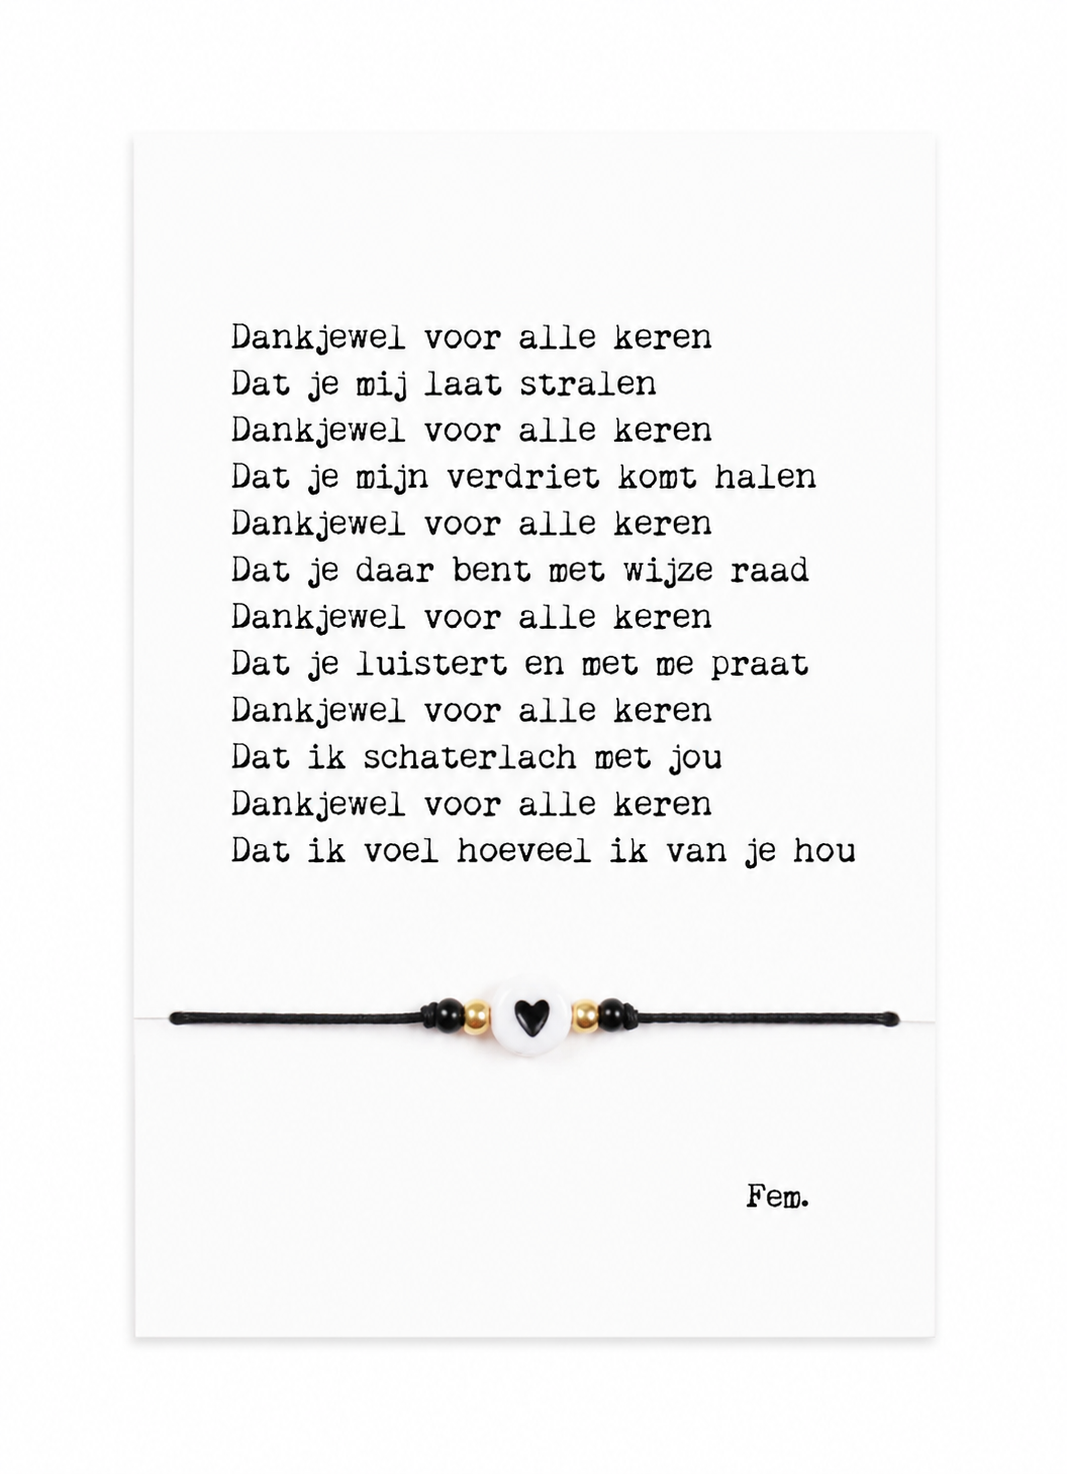 Dankjewel voor alle keren
Dat je mij laat stralen
Dankjewel voor alle keren
Dat je mijn verdriet komt halen
Dankjewel voor alle keren
Dat je daar bent met wijze raad
Dankjewel voor alle keren
Dat je luistert en met me praat
Dankjewel voor alle keren
Dat ik schaterlach met jou
Dankjewel voor alle keren
Dat ik voel hoeveel ik van je hou
Fem.